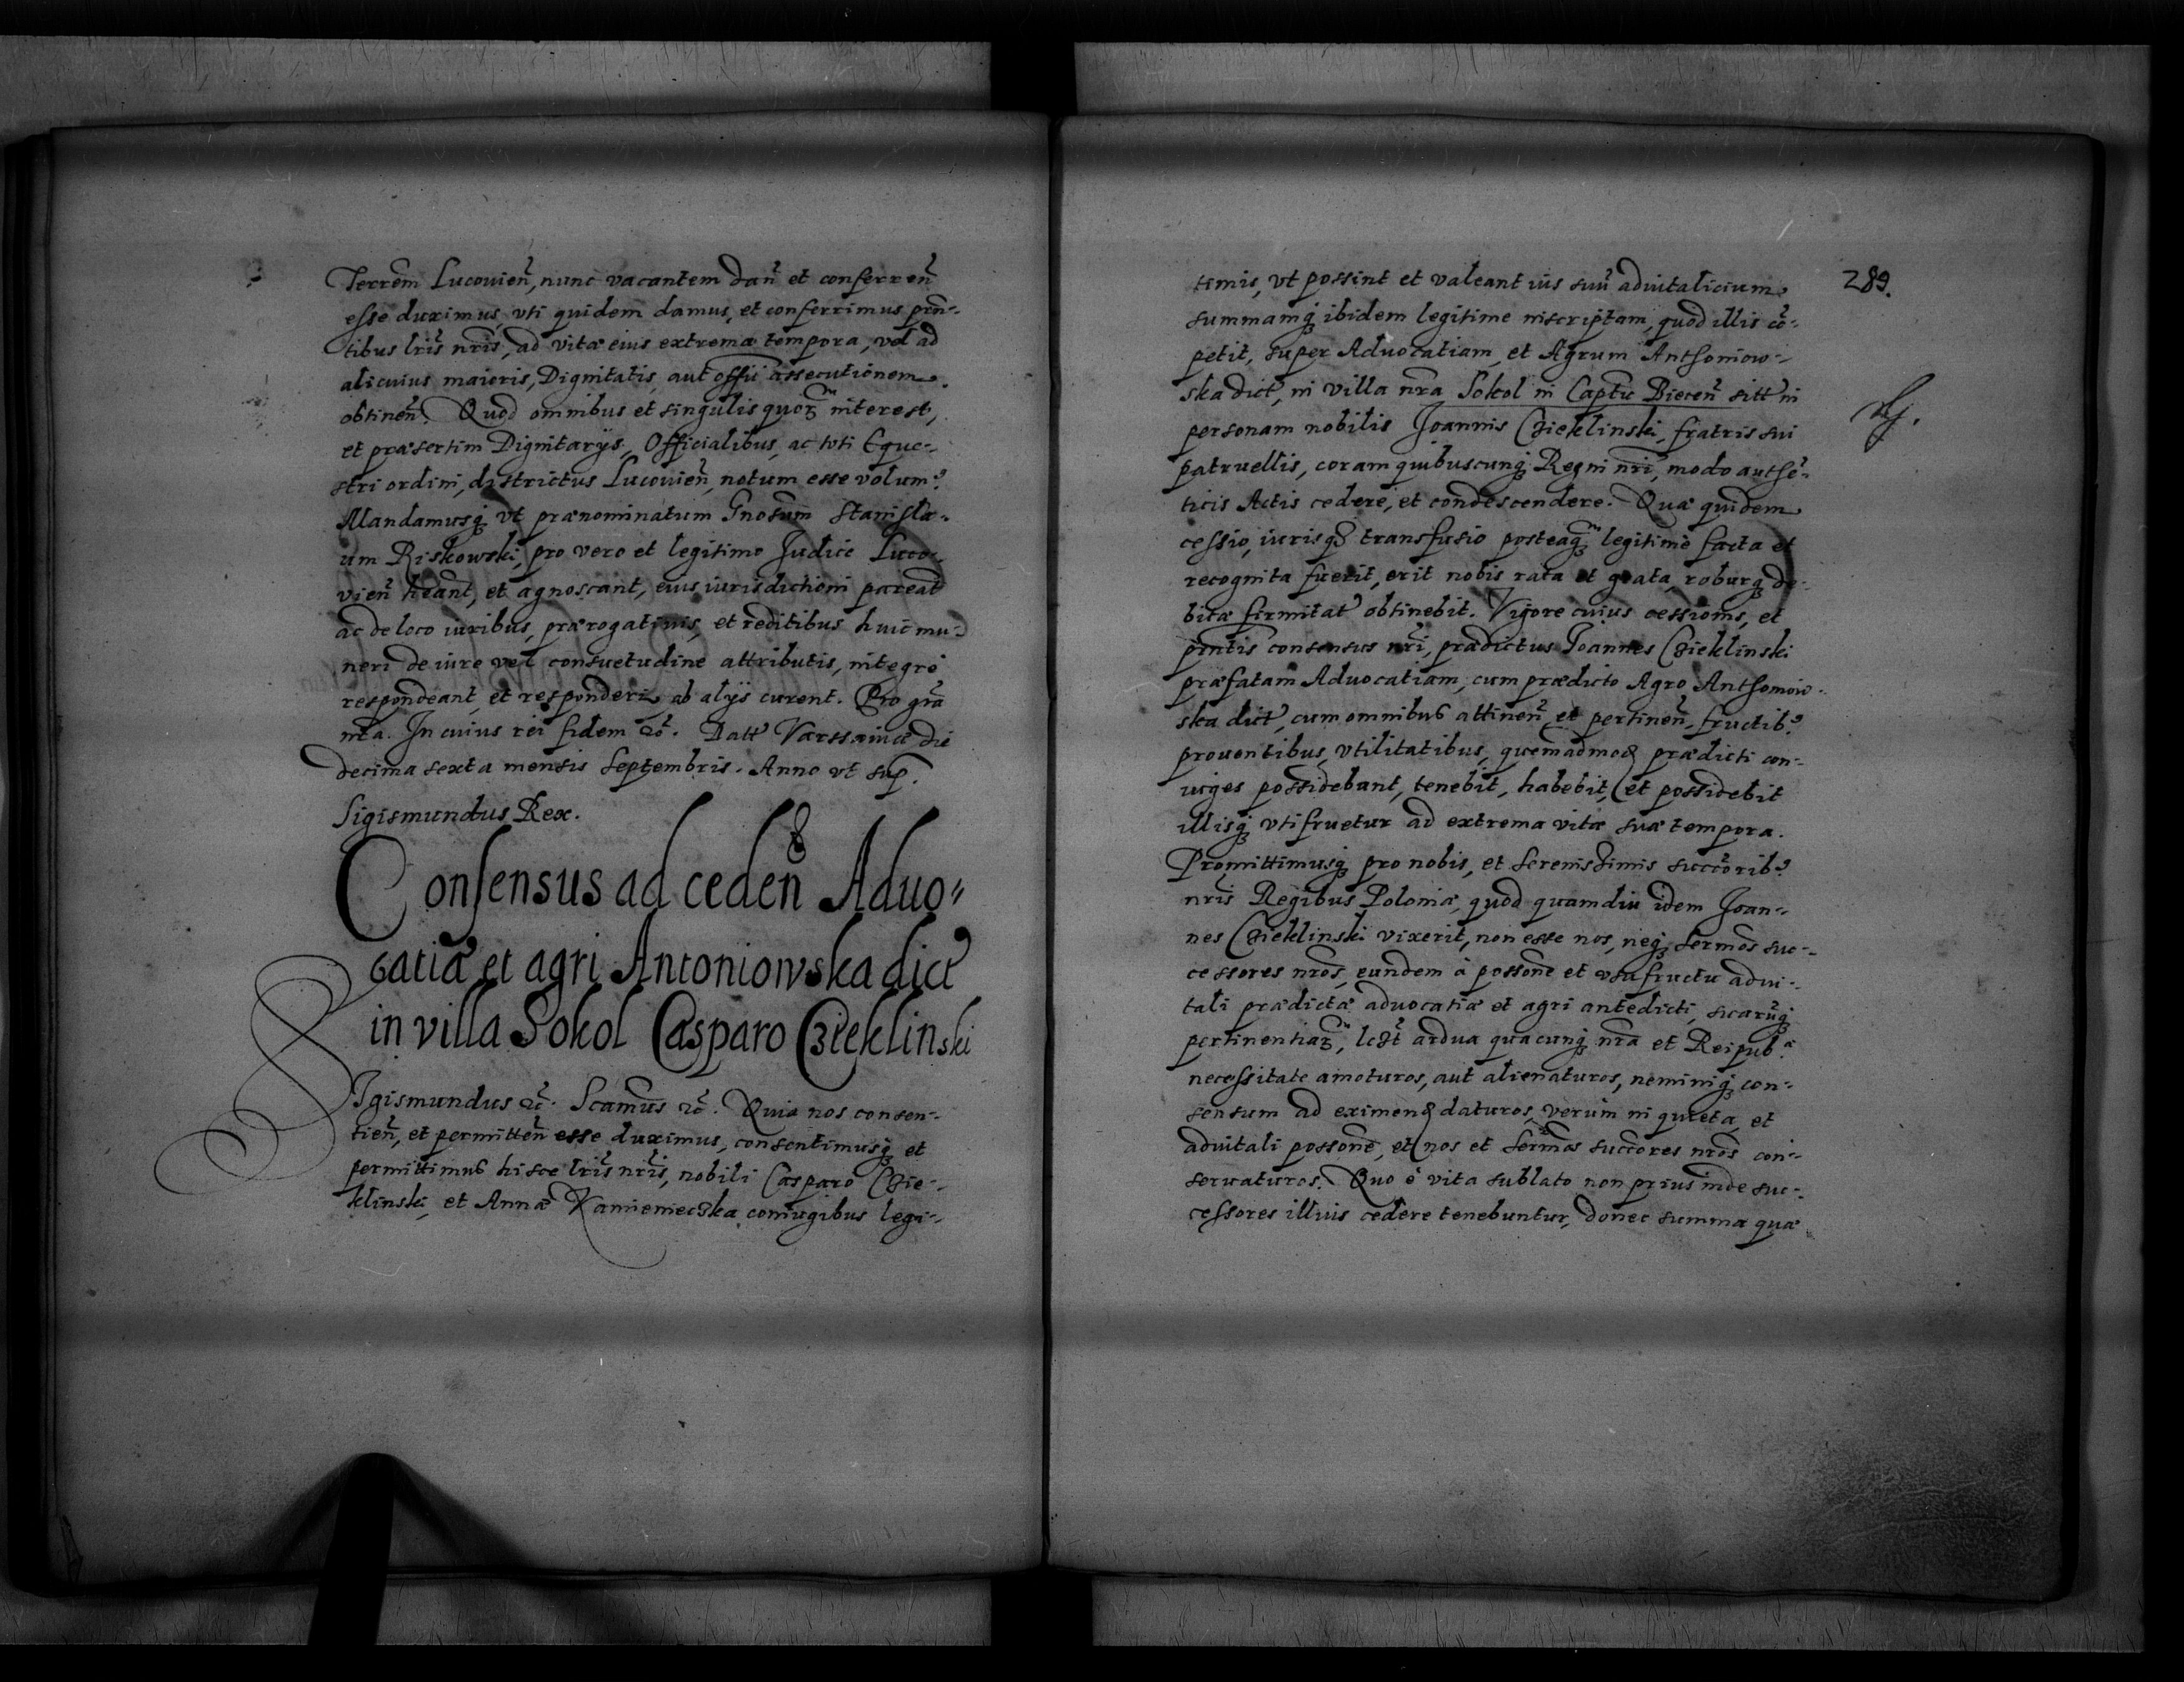 Terrem Lucovien̄, nunc vacantem dan̄ et conferren̄
esse duximus, vti quidem damus, et conferrimus pn̄-
tibus lris nris, ad vitæ eius extrema tempora, vel ad
alicuius maioris, Dignitatis aut offii assecutionem
obtinen̄. Quod omnibus et singulis quorm̄ interest,
et præsertim Dignitarijs, Officialibus, ac toti Eque-
stri ordini, districtus Lucovien̄, notum esse volum9.
Mandamusq vt prænominatum Gnosum Stanisla-
um Riskowski, pro vero et legitimo Judice Luco-
vien̄ heant, et agnoscant, eius iurisdictioni pareat
ac de loco iuribus, prærogativis, et reditibus huic mu-
neri de iure vel consuetudine attributis, integrè
respondeant, et responderi ab alijs curent. Pro gra
nra. In cuius rei fidem etc. Datt Varssaviæ die
decima sexta mensis Septembris. Anno vt sup.
Sigismundus Rex.
Consensus ad ceden̄ Aduo-
catiā et agri Antoniowska dict
in villa Sokol Casparo Czieklinski
SIgismundus etc. Scamus etc. Quia nos consen-
tien̄, et permitten̄ esse duximus, consentimusq et
permittimus hisce lris nris, nobili Casparo Czie-
klinski, et Annæ Kamieniecska coniugibus legi-
289.
timis, vt possint et valeant ius suū aduitalicium
summamq ibidem legitime inscriptam, quod illis cō-
petit, super Aduocatiam, et Agrum Anthoniow-
ska dict, in villa nra Sokol in Captu Biecen̄ sitt in
personam nobilis Joannis Czieklinski, fratris sui
patruellis, coram quibuscunq Regni nri, modo authē-
ticis Actis cedere, et condescendere. Quæ quidem
cessio, iurisq transfusio posteaqm̄ legitimè facta et
recognita fuerit, erit nobis rata et grata, roburq de-
bitæ firmitat obtinebit. Vigore cuius cessionis, et
pntis consensus nri, prædictus Joannes Czieklinski
præfatam Aduocatiam, cum prædicto Agro Anthoniow-
ska dict, cum omnibus attinen̄ et pertinen̄, fructib9
prouentibus, vtilitatibus, quemadmod prædicti con-
iuges possidebant, tenebit, habebit, et possidebit
illisq vtifruetur ad extrema vitæ suæ tempora.
Promittimusq pro nobis, et Serenissimis succorib9
nris Regibus Poloniæ, quod quamdiu idem Joan-
nes Czieklinski vixerit, non esse nos, neq Sermos suc-
cessores nros, eundem à possone et vsufructu adui-
tali prædictæ aduocatiæ et agri antedicti, suarūq
pertinentiarm̄, lczt ardua quacunq nra et Reipub.æ
necessitate amoturos, aut alienaturos, neminiq con-
sensum ad eximend daturos, verùm in quieta, et
aduitali possone, et nos et sermos succores nros con-
seruaturos. Quo è vita sublato non prius inde suc-
cessores illius cedere tenebuntur, donec summa quæ